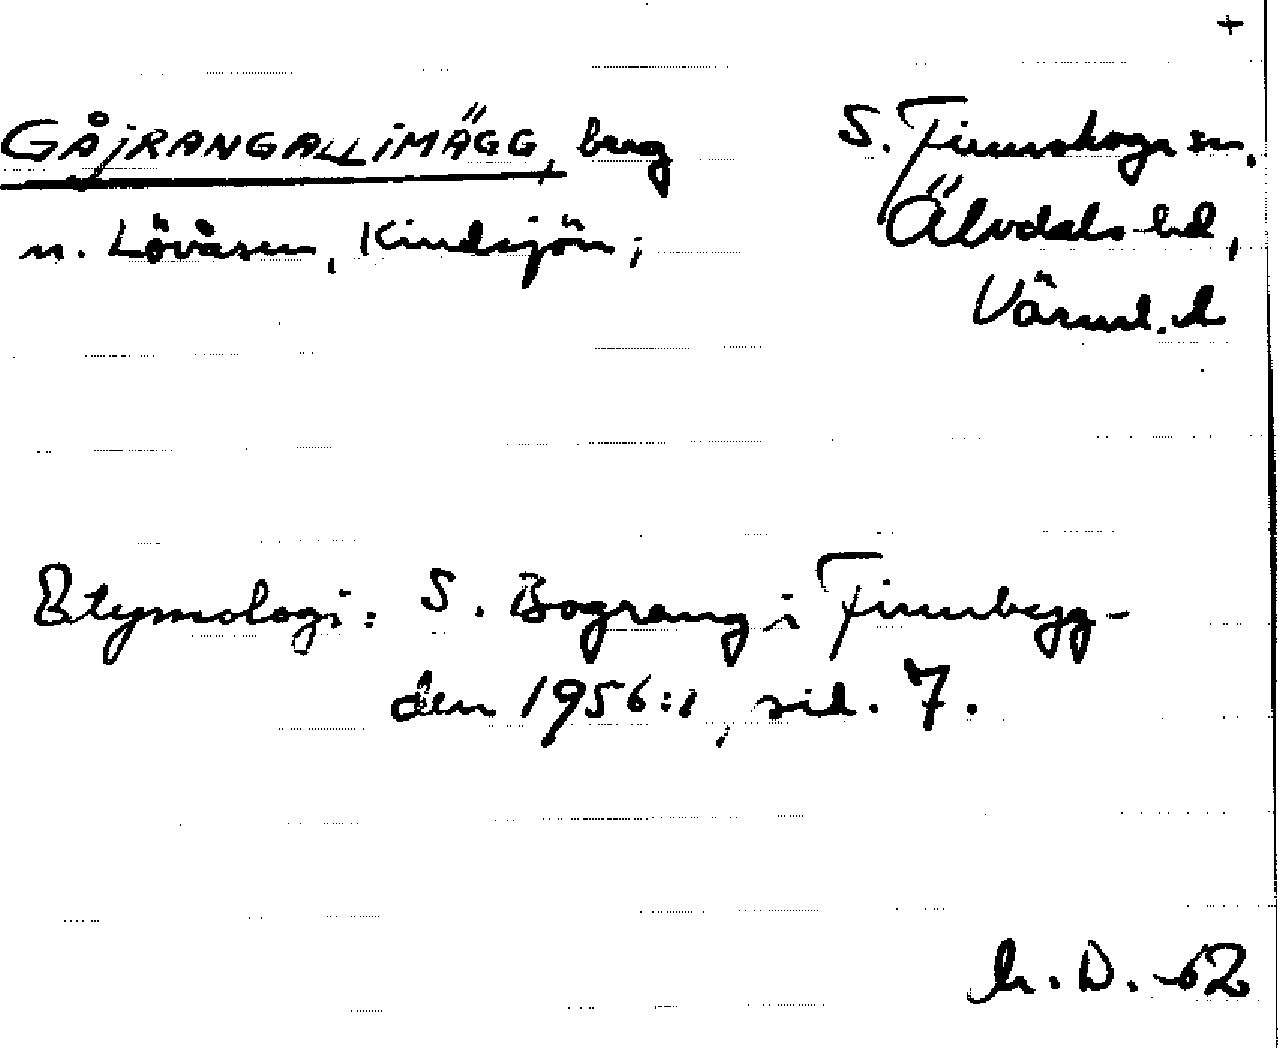 +
GÅJRANGALLIMÄGG, berg
S. Finnskoga sn,
n. Lövåsen, Kindsjön;
Älvdals hd,
Värml. l
Etymologi: S. Bograng i Finnbygg-
den 1956:1, sid. 7.
h. D. -62